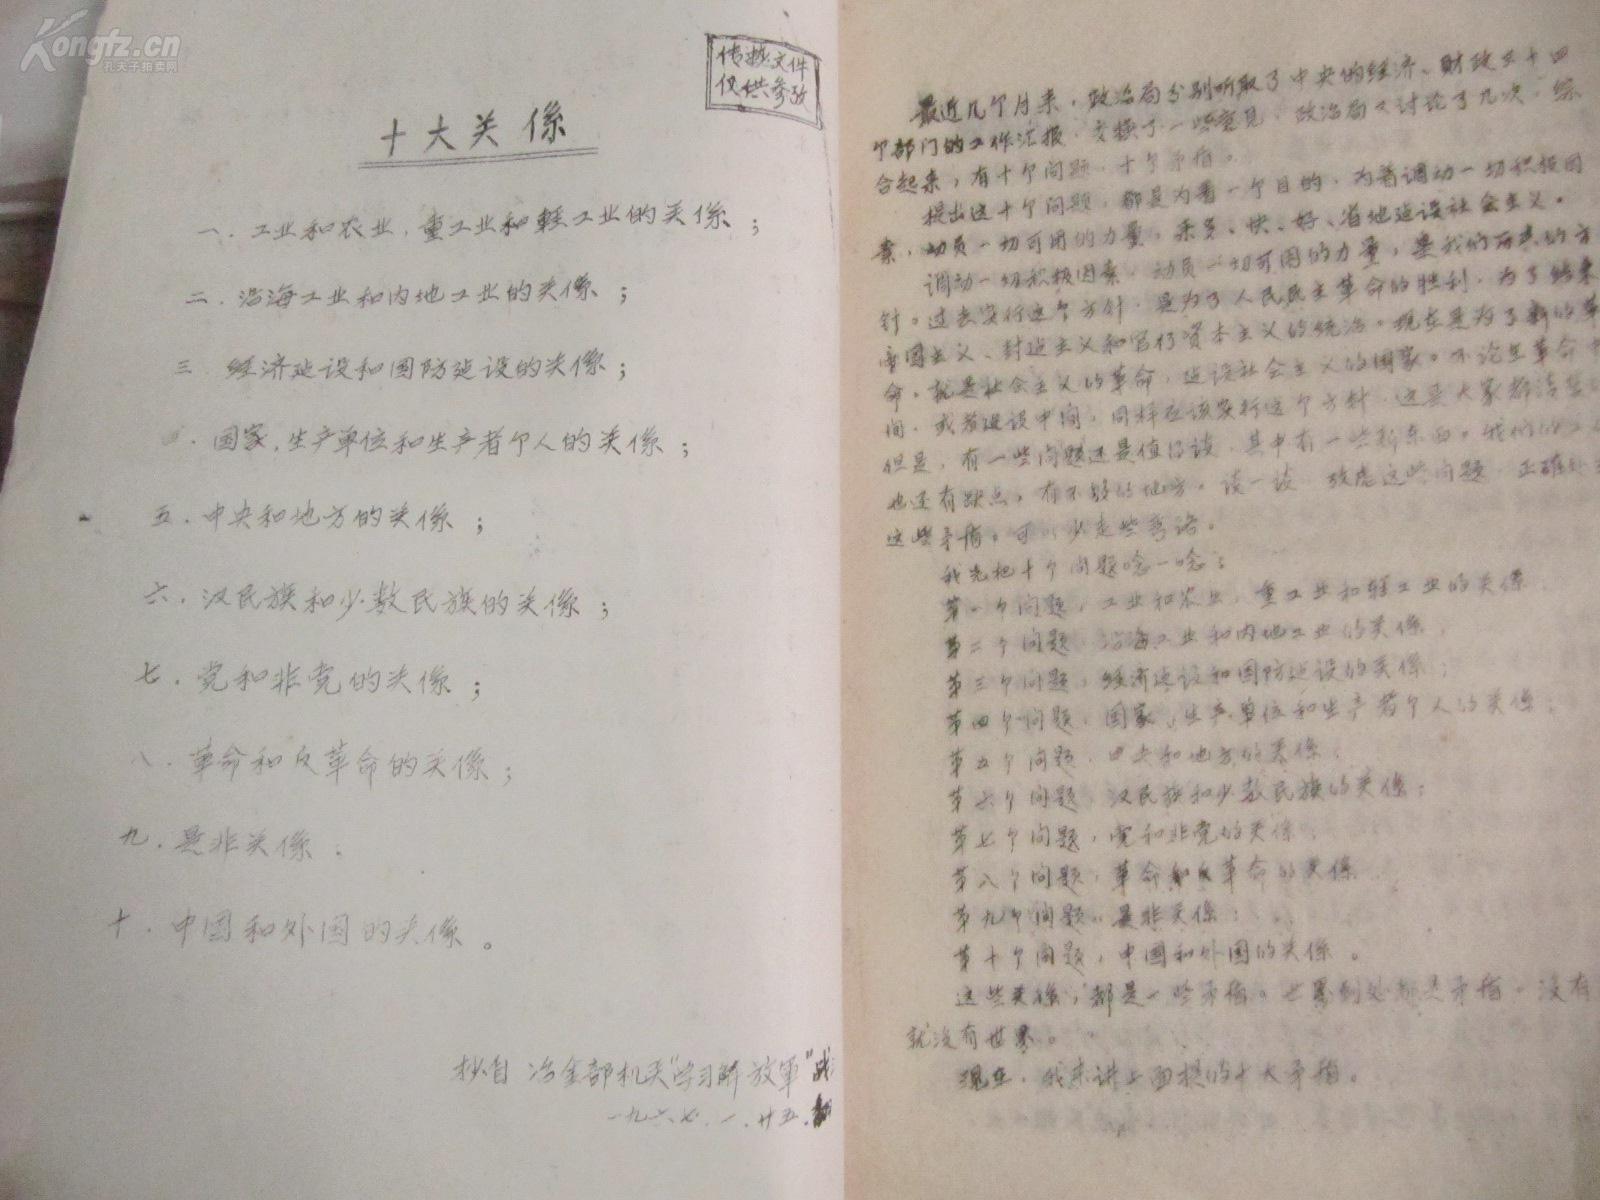 Kongfz.cn
孔夫子拍卖网
传抄文件
仅供参攷
十大关係
一．工业和农业，重工业和軽工业的关係；
二．沿海工业和内地工业的关係；
三．经济建设和国防建设的关係；
．国家，生产单位和生产者个人的关係；
五．中央和地方的关係；
六．汉民族和少数民族的关係；
七．党和非党的关係；
八．革命和反革命的关係；
九．是非关係；
十．中国和外国的关係。
抄自 冶金部机关“学习解放軍”战
一九六七．一．廿五．
最近几个月来，政治局分别听取了中央的经济、财政三十四
个部门的工作汇报，交换了一些意见，政治局又讨论了几次，综
合起来，有十个问题，十个矛盾。
提出这十个问题，都是为着一个目的，为着调动一切积极因
素，动员一切可用的力量，来多、快、好、省地建设社会主义。
调动一切积极因素，动员一切可用的力量，是我们历来的方
针。过去实行这个方针，是为了人民民主革命的胜利，为了结束
帝国主义、封建主义和官僚资本主义的统治。现在是为了新的革
命，就是社会主义的革命，建设社会主义的国家。不论在革命中
间，或者建设中间，同样应该实行这个方针，这是大家都清楚
但是，有一些问题还是值得谈，其中有一些新东西。我们的工
也还有缺点，有不够的地方。谈一谈，攷虑这些问题，正确处
这些矛盾，可以少走些弯路。
我先把十个问题唸一唸：
第一个问题，工业和农业，重工业和轻工业的关係；
第二个问题，沿海工业和内地工业的关係；
第三个问题，经济建设和国防建设的关係；
第四个问题，国家，生产单位和生产者个人的关係；
第五个问题，中央和地方的关係；
第六个问题，汉民族和少数民族的关係；
第七个问题，党和非党的关係；
第八个问题，革命和反革命的关係
第九个问题，是非关係；
第十个问题，中国和外国的关係。
这些关係，都是一些矛盾。世界到处都是矛盾。没有
就没有世界。
现在，我来讲上面提的十大矛盾。